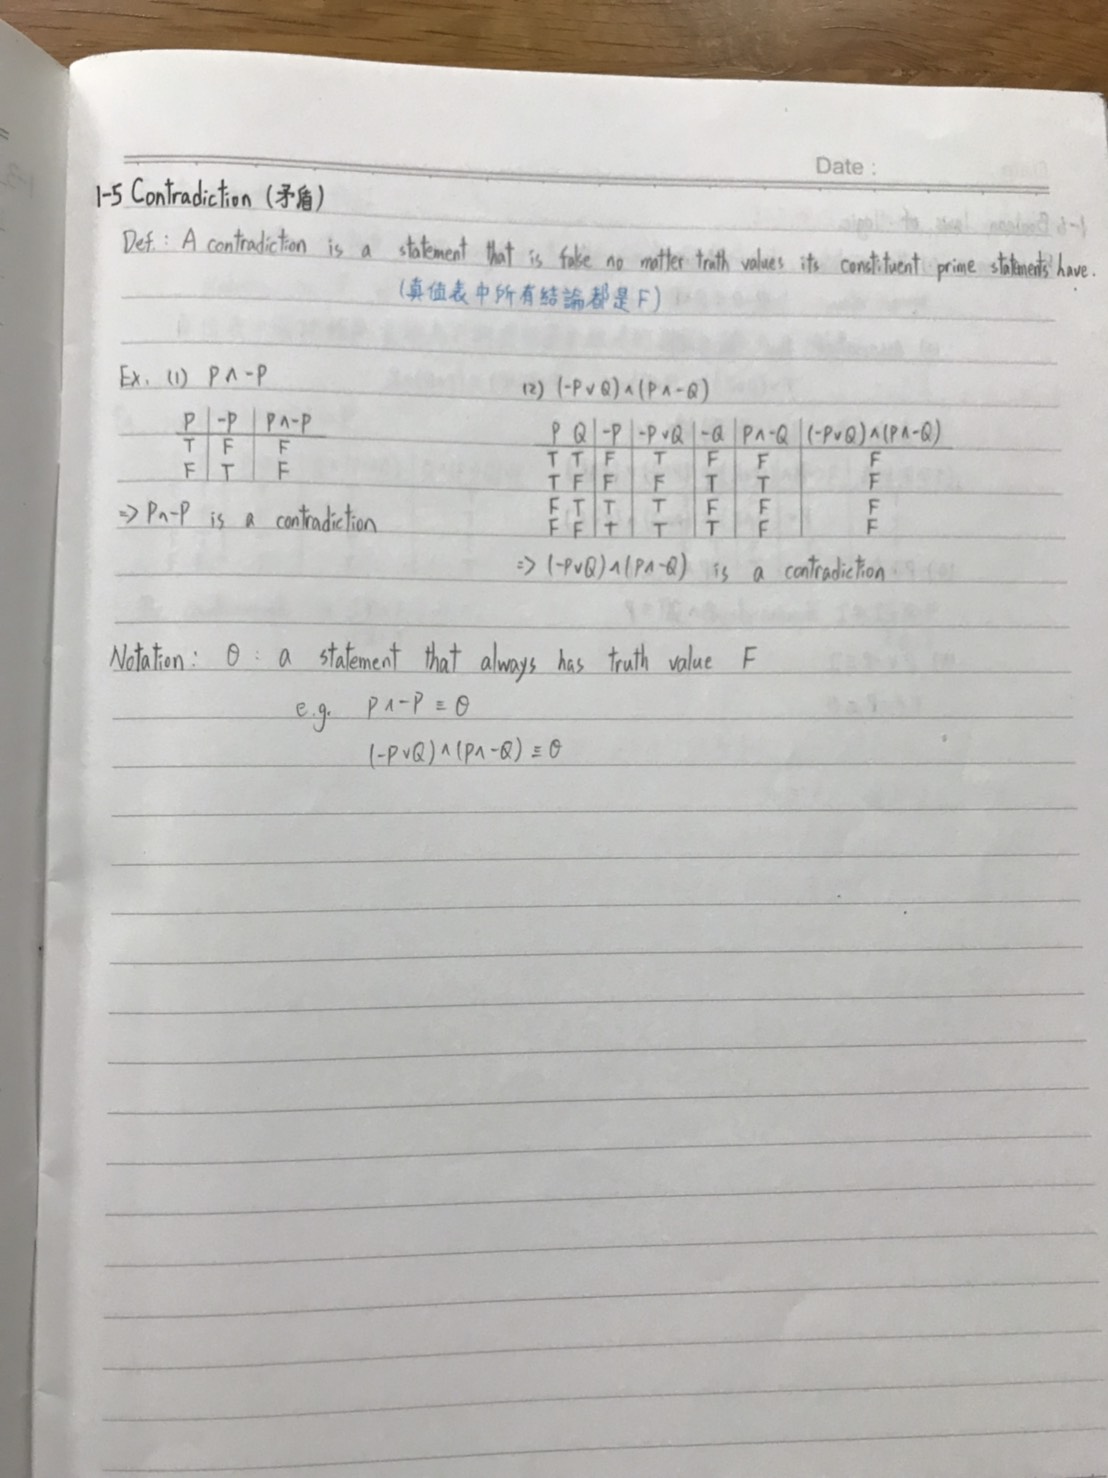 Date :
1-5 Contradiction (矛盾)
Def. : A contradiction is a statement that is false no matter truth values its constituent prime statements have.
(真值表中所有結論都是F)
Ex. (1) P∧-P
P | -P | P∧-P
T | F | F
F | T | F
=> P∧-P is a contradiction
(2) (-P∨Q)∧(P∧-Q)
P Q | -P | -P∨Q | -Q | P∧-Q | (-P∨Q)∧(P∧-Q)
T T | F | T | F | F | F
T F | F | F | T | T | F
F T | T | T | F | F | F
F F | T | T | T | F | F
=> (-P∨Q)∧(P∧-Q) is a contradiction
Notation : θ : a statement that always has truth value F
e.g. P∧-P ≡ θ
(-P∨Q)∧(P∧-Q) ≡ θ